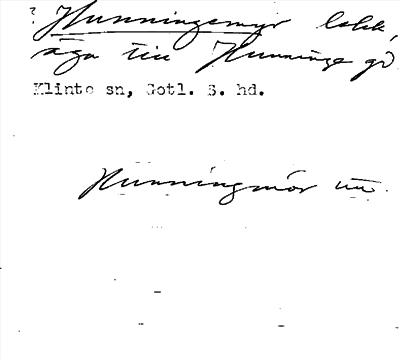 ? Hunningemyr lokk,
äga till Hunninge gd
Klinte sn, Gotl. S. hd.
Hunningmör